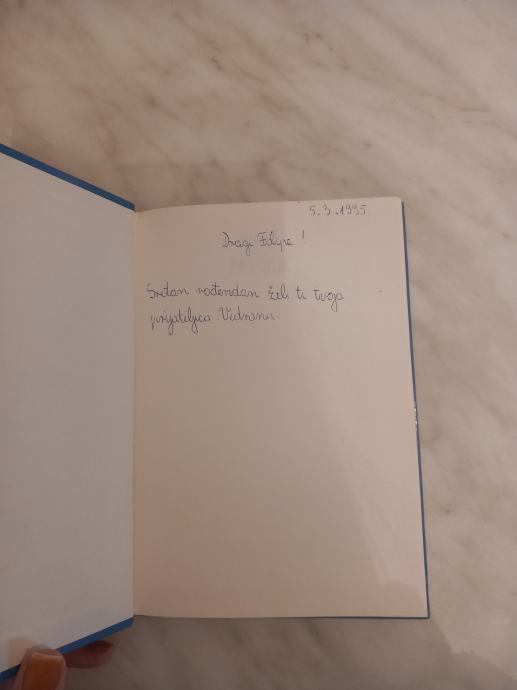 5.3.1995
Dragi Filipe!
Sretan rođendan želi ti tvoja
prijateljica Vedrana.